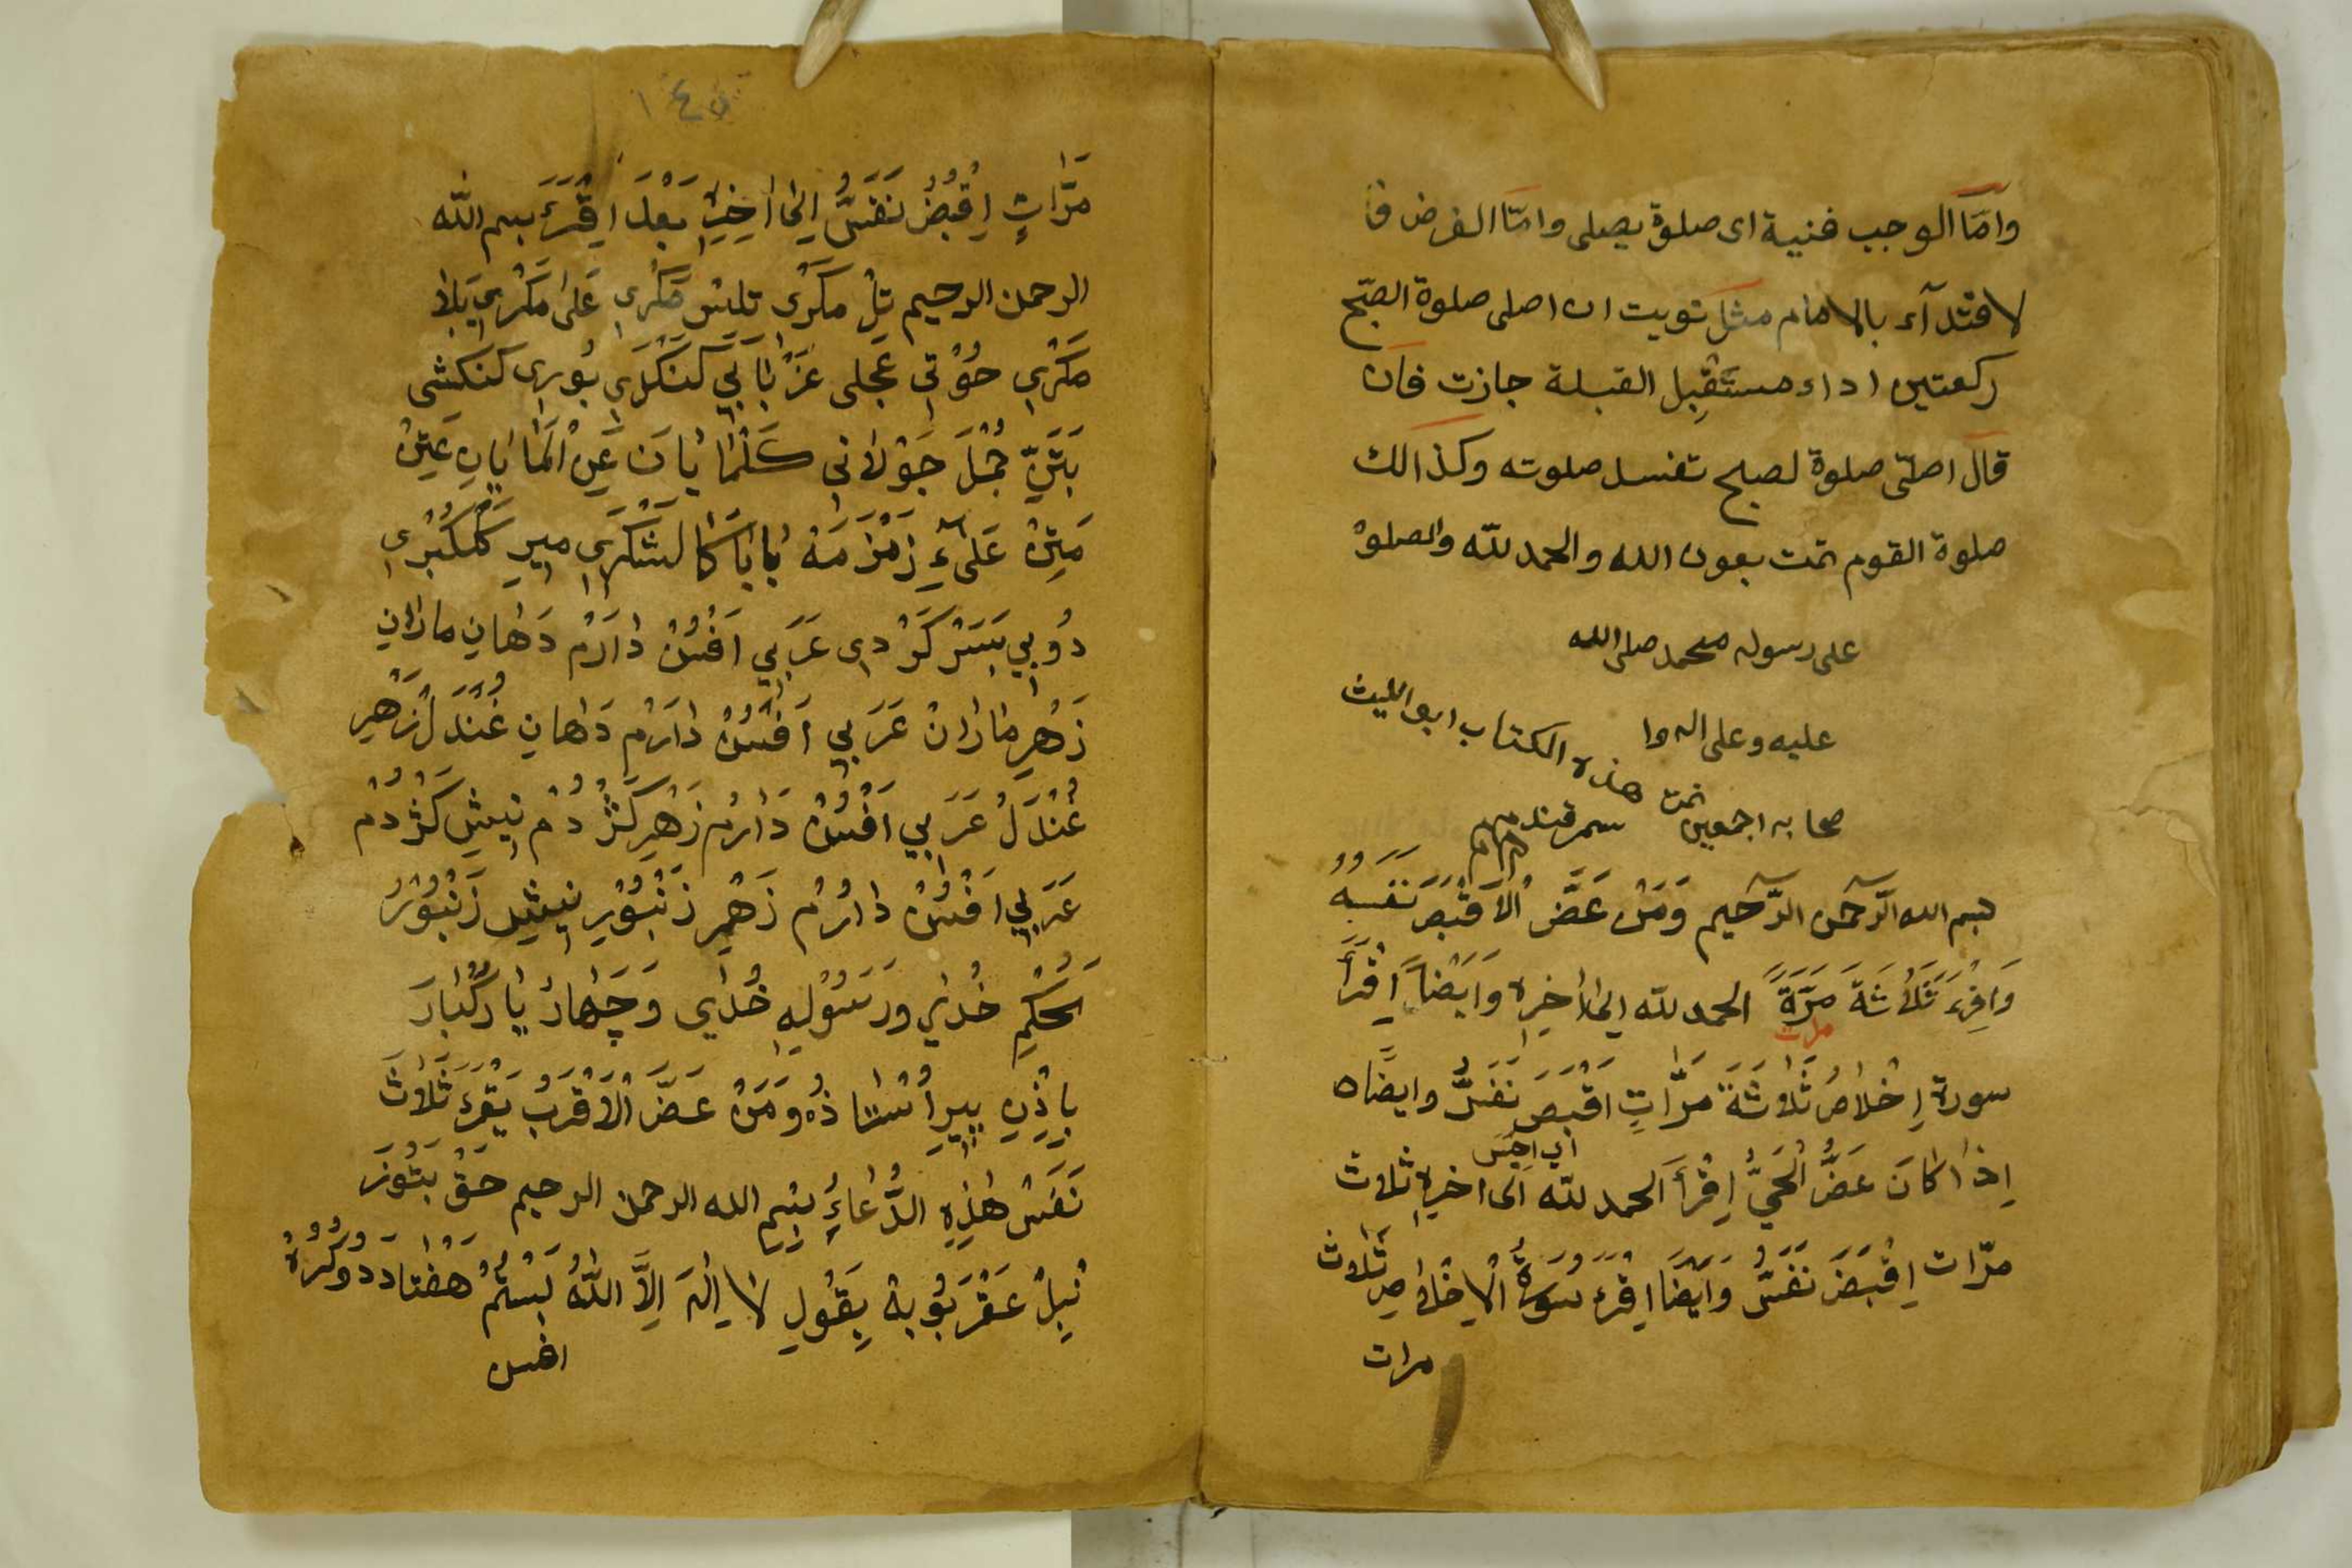 وامّا الوجب فنية اى صلوة يصلى وامّا الفرض فا
لاقتدآء بالامام مثل نويت ان اصلى صلوة الصّبح
ركعتين اداء مستَقْبِل القبلة جازت فان
قال اصلّى صلوة لصبح تفسد صلوته وكذالك
صلوة القوم تمت بعون الله والحمد للّه والصلوة
على رسوله محمد صلى الله
عليه وعلى اله وا
صحابه اجمعين
تمت هذه الكتاب ابو الليث
سمرقندى
بسم الله الرّحمن الرّحيم وَمَنْ عَضَّ الاَقْبَض نَفَسَهُ
وَاقْرِء ثَلٰثَةَ مَرَّةً الحمد للّه الى اٰخِرِه وَاَيْضًا اِقْرَأ
مرات
سورة اِخْلاصْ ثَلاثَةَ مَرَّاتٍ اَقْبَضَ نَفَسُ وايضًا ه
اِذا كانَ عَضُّ الْحَيَّ اِقْرَأَ الحمد للّه الى اخره ثلاث
اى احبس
مرّات اِقْبَضَ نَفَسُ وَاَيْضًا اقْرَء سُورَةُ الْاِخْلاصِ ثَلاث
مرات
١٤٥
مَرَّاتٍ اِقْبُضُ نَفَسُ اِلى اٰخِرِه بَعْدَ اِقْرَء بسم اللّه
الرحمن الرحيم تل مَكَرى تلش مَكَرِى عَلى مَكْرِى بَلا
مَكْرِى حُوْتِى عَجلى عَزْ بابَاىِ كَنْكَرَىِ بُورِى كَنكشى
بَتَرىّ جُمْلَ جَوْلانى كَلْمَا يَانَ عَنِ الْمَا يَانِ عَتِنْ
مَتِنْ عَلٰى زَمْزَمَهْ بابا كا لشكَرِى مِيرِ كَلْكُبْرِى
دُوبِي بَسَتَر كَرْدى عَرَبِي اَفْسُنْ دارَمْ دَهَانِ مَارَانِ
زَهْرِ مَارَانْ عَرَبِي اَفْسُنْ دارَمْ دَاهانِ غُنْدَلْ زَهْرِ
غُنْدَلْ عَرَبِي اَفْسُنْ دَارَمْ زَهْرِ كَژْدُمْ نِيشِ كَژْدُمْ
عَرَبِي اَفْسُنْ دارَمْ زَهْرِ زَنْبُوْرِ نِيشِ زَنْبُوْرْ
بَحُكْمِ خُداىِ وَرَسُوْلِهِ خُدَاي وَچَهَارْ يَارِ كُبَارَ
بِاِذْنِ پِيرِ اُسْتَا ذُه وَمَنْ عَضَّ الْاَقْرَبْ يَقْرَءَ ثَلاثَ
نَفَسْ هٰذِهِ الدُّعَاءِ بِسْمِ الله الرحمن الرحيم حَقْ بَتُوزَ
نِيلْ عَقْرَبُو بِهْ يَقُولِ لا اِلٰهَ اِلاَّ اللّٰهُ بَسْتَمْ هَفْتاد دُوگُزهْ
افس